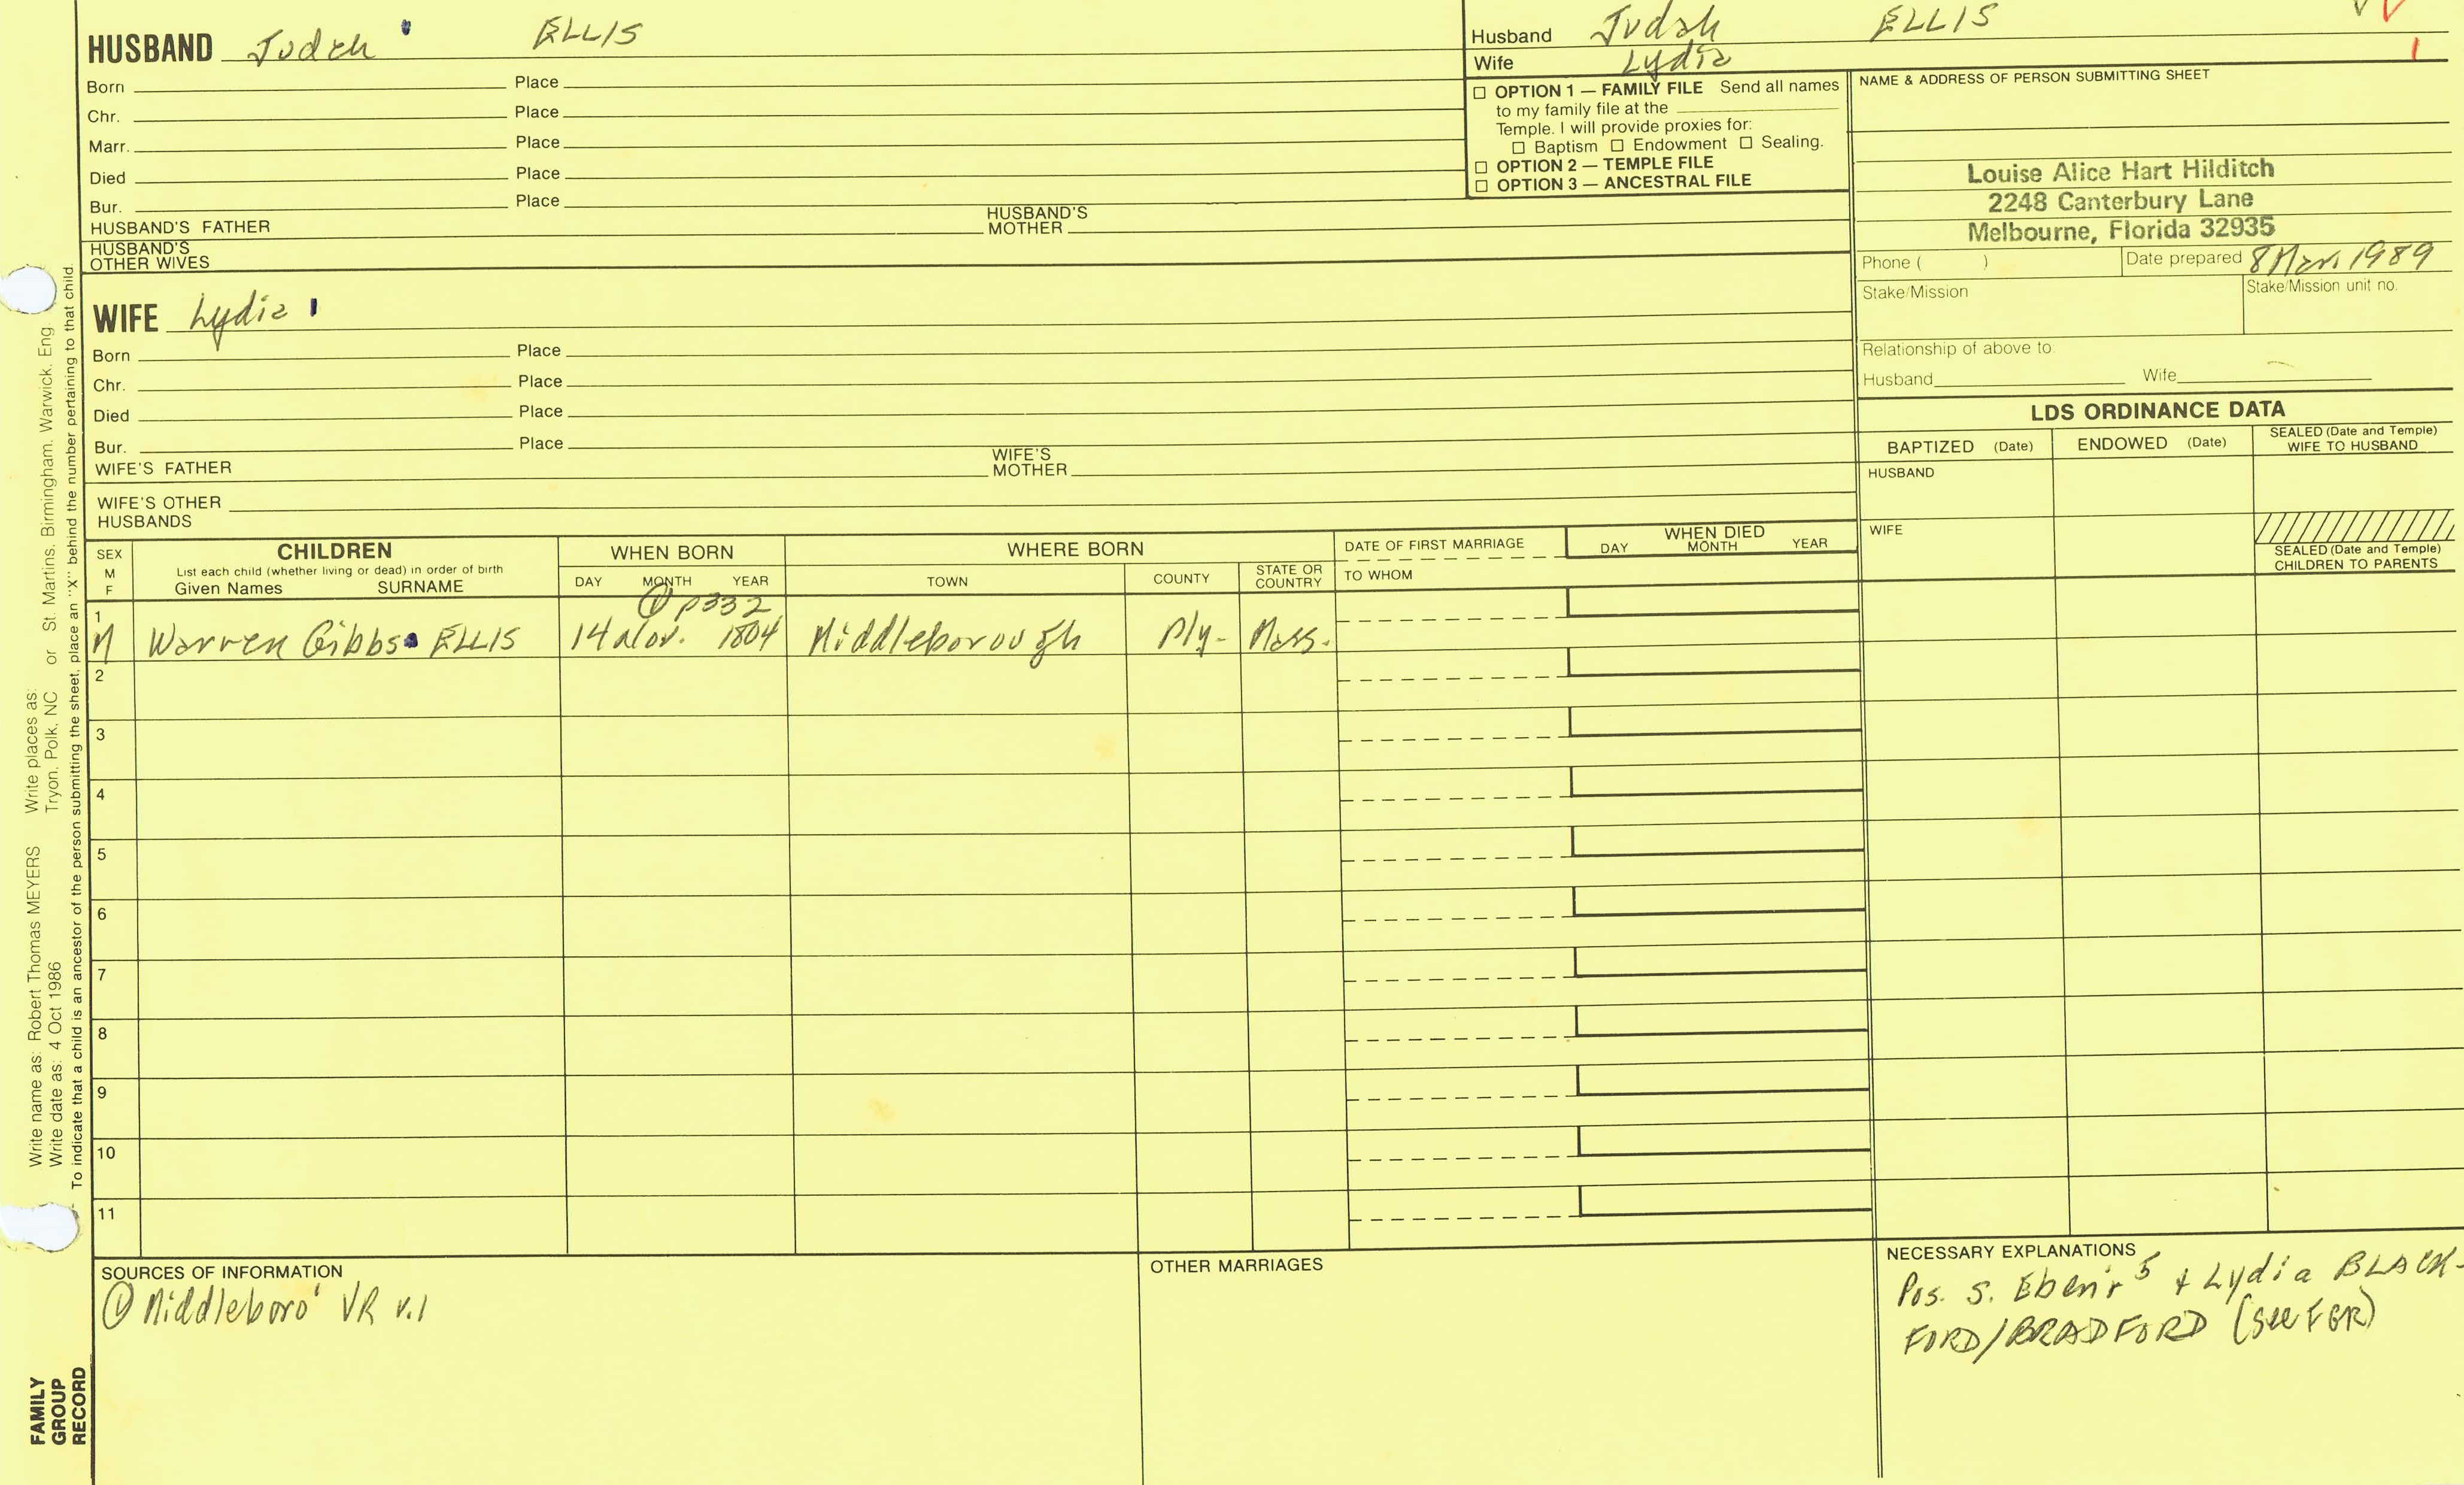 HUSBAND Judah ELLIS
Born Place
Chr. Place
Marr. Place
Died Place
Bur. Place
HUSBAND'S FATHER HUSBAND'S MOTHER
HUSBAND'S OTHER WIVES
Husband Judah ELLIS
Wife Lydia
☐ OPTION 1 — FAMILY FILE Send all names
to my family file at the
Temple. I will provide proxies for:
☐ Baptism ☐ Endowment ☐ Sealing.
☐ OPTION 2 — TEMPLE FILE
☐ OPTION 3 — ANCESTRAL FILE
NAME & ADDRESS OF PERSON SUBMITTING SHEET
Louise Alice Hart Hilditch
2248 Canterbury Lane
Melbourne, Florida 32935
Phone ( ) Date prepared 8 Mar. 1989
Stake/Mission Stake/Mission unit no.
Relationship of above to:
Husband Wife
WIFE Lydia
Born Place
Chr. Place
Died Place
Bur. Place
WIFE'S FATHER WIFE'S MOTHER
WIFE'S OTHER
HUSBANDS
LDS ORDINANCE DATA
BAPTIZED (Date) ENDOWED (Date) SEALED (Date and Temple) WIFE TO HUSBAND
HUSBAND
WIFE
SEALED (Date and Temple)
CHILDREN TO PARENTS
SEX M F
CHILDREN
List each child (whether living or dead) in order of birth
Given Names SURNAME
WHEN BORN
DAY MONTH YEAR
WHERE BORN
TOWN COUNTY STATE OR COUNTRY
DATE OF FIRST MARRIAGE
TO WHOM
WHEN DIED
DAY MONTH YEAR
① p332
1 M Warren Gibbs ELLIS 14 Nov. 1804 Middleborough Ply- Mass.
2
3
4
5
6
7
8
9
10
11
SOURCES OF INFORMATION
① Middleboro' VR v.1
OTHER MARRIAGES
NECESSARY EXPLANATIONS
Pos. s. Eben'r 5 + Lydia BLACK-
FORD/BRADFORD (see FGR)
Write name as: Robert Thomas MEYERS Write places as:
Write date as: 4 Oct 1986 Tryon, Polk, NC or St. Martins, Birmingham, Warwick, Eng.
To indicate that a child is an ancestor of the person submitting the sheet, place an "X" behind the number pertaining to that child.
FAMILY
GROUP
RECORD